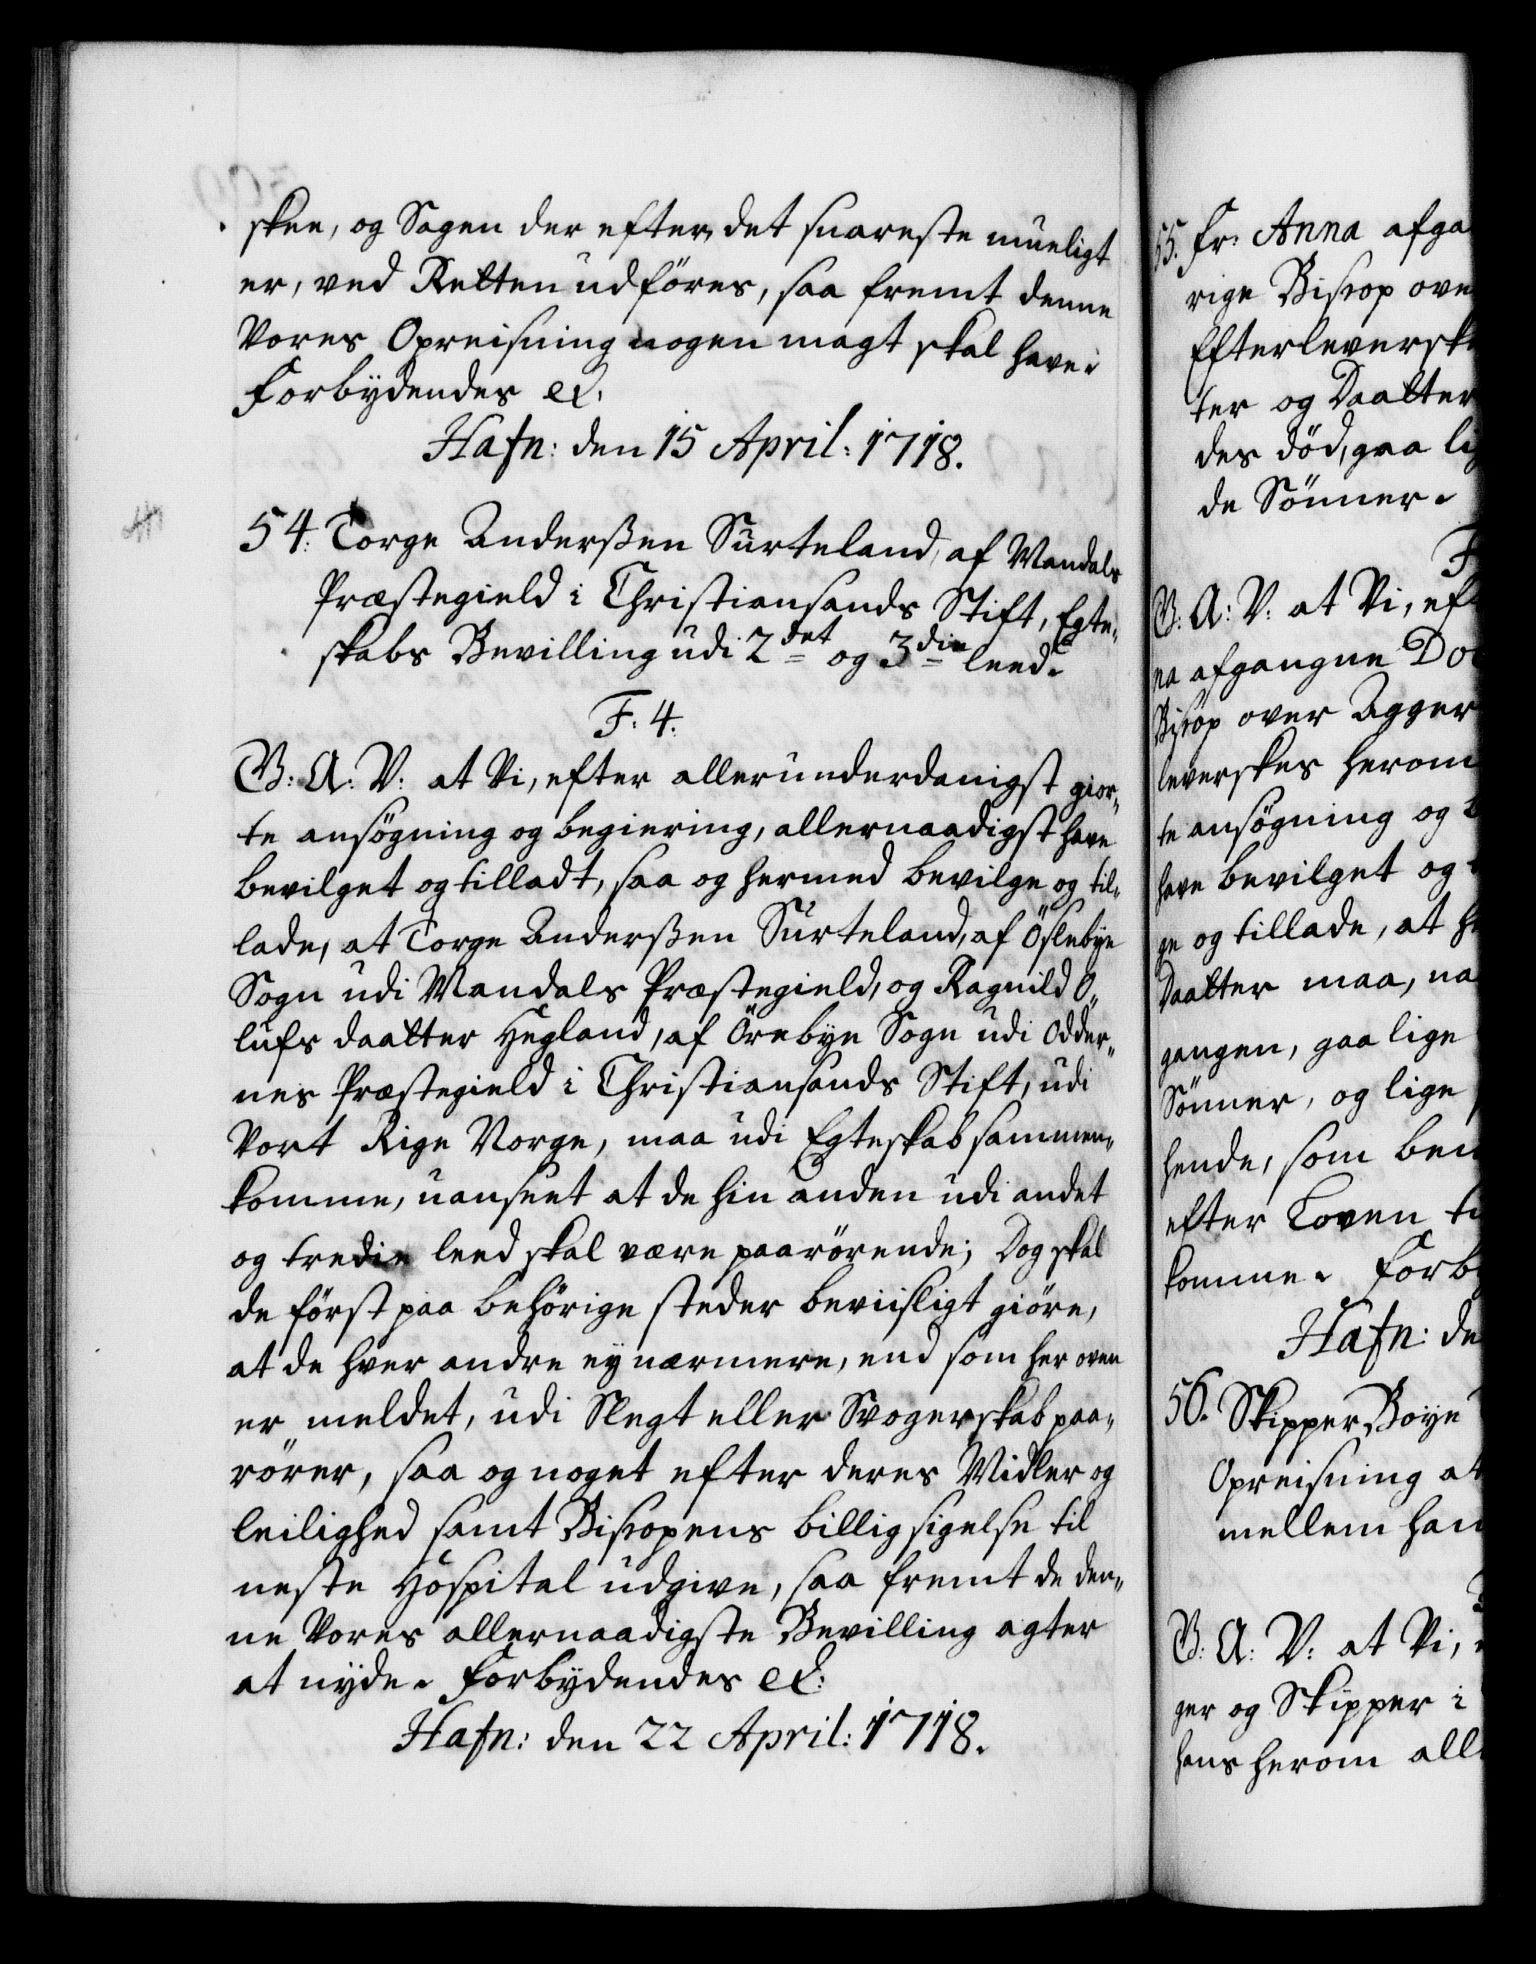 skee, og Sagen der efter, det snareste mueligt
er, ved Retten udföres, saa fremt denne
Vores Opreisning nogen magt skal have.
Forbydendes etc.
Hafn: den 15 April: 1718.
54. Torge Anderßen Surteland, af Mandals
Præstegield i Christiansands Stift, Egte-
skabs Bevilling udi 2det og 3die leed.
F. 4.
G: A: V: at Vi, efter allerunderdanigst gior-
te ansögning og begiering, allernaadigst have
bevilget og tilladt, saa og hermed bevilge og til-
lade, at Torge Anderßen Surteland, af Öslebye
Sogn udi Mandals Præstegield, og Ragnild O-
lufs daatter Hegland, af Örebye Sogn udi Odder-
nes Præstegield i Christiansands Stift, udi
Vort Rige Norge, maa udi Egteskab sammen-
komme, uanseet at de hin anden udi andet
og tredie leed skal være paarörende; Dog skal
de först paa behörige steder beviisligt giöre,
at de hver andre ey nærmere, end som her oven
er meldet, udi Slegt eller Svogerskab paa-
rörer, saa og noget efter deres Midler og
leilighed samt Biscopens billig sigelse til
neste Hospital udgive, saa fremt de den-
ne Vores allernaadigste Bevilling agter
at nyde. Forbydendes etc:
Hafn: den 22 April: 1718.
55. Fr: Anna afga
rige Biscop ove
Efterleversk
ter og Daatter
des död, gaa li
de Sönner.
F
G: A: V: at Vi, eft
na afgangne Do
Biscop over Agger
leverskes herom
te ansögning og b
have bevilget og
ge og tillade, at h
Daatter maa, na
gangen, gaa lige
Sönner, og lige
hende, som ben
efter Loven ti
komme. Forb
Hafn: de
56. Skipper Boye
Opreisning at
mellem han
G: A: V: at Vi,
ger og Skipper i
hans herom all